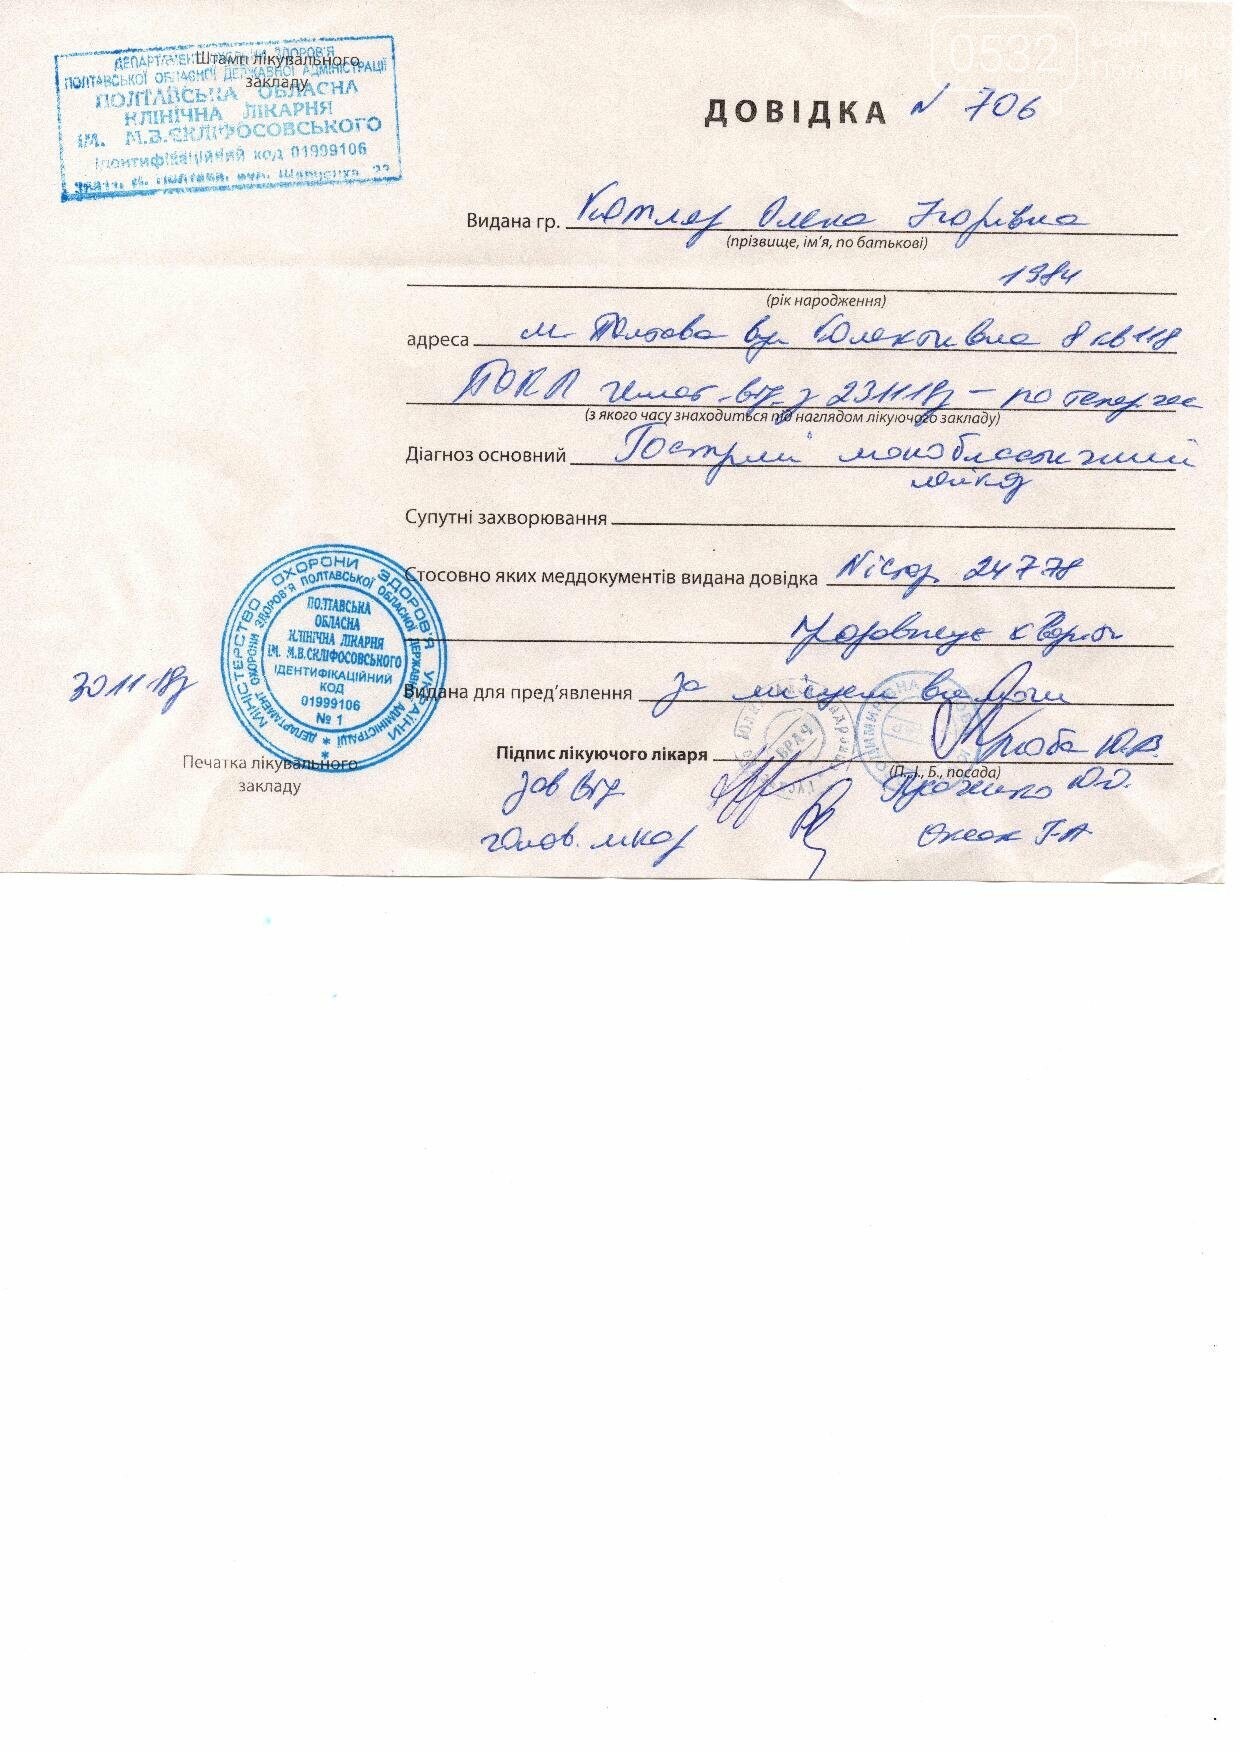 Штамп лікувального
закладу
ДЕПАРТАМЕНТ ОХОРОНИ ЗДОРОВ'Я
ПОЛТАВСЬКОЇ ОБЛАСНОЇ ДЕРЖАВНОЇ АДМІНІСТРАЦІЇ
ПОЛТАВСЬКА ОБЛАСНА
КЛІНІЧНА ЛІКАРНЯ
ІМ. М.В.СКЛІФОСОВСЬКОГО
Ідентифікаційний код 01999106
м. Полтава, вул. Шевченка, 23
ДОВІДКА N 706
Видана гр. Котляр Олена Ігорівна
(прізвище, ім'я, по батькові)
1984
(рік народження)
адреса м. Полтава вул Колективна 8 кв 118
ПОКЛ гемат. від. з 231118р – по тепер. час
(з якого часу знаходиться під наглядом лікуючого закладу)
Діагноз основний Гострий монобластичний
лейкоз
Супутні захворювання
Стосовно яких меддокументів видана довідка N істор. 24778
Продовжує хворіти
Видана для пред'явлення за місцем вимоги
301118р
Підпис лікуючого лікаря Ю.В.
(П., І., Б., посада)
зав від
голов. лікар Г.А
Печатка лікувального
закладу
МІНІСТЕРСТВО ОХОРОНИ ЗДОРОВ'Я УКРАЇНИ
ДЕПАРТАМЕНТ ОХОРОНИ ЗДОРОВ'Я ПОЛТАВСЬКОЇ ОБЛАСНОЇ ДЕРЖАВНОЇ АДМІНІСТРАЦІЇ
ПОЛТАВСЬКА
ОБЛАСНА
КЛІНІЧНА ЛІКАРНЯ
ІМ. М.В.СКЛІФОСОВСЬКОГО
ІДЕНТИФІКАЦІЙНИЙ
КОД
01999106
№ 1
ВРАЧ